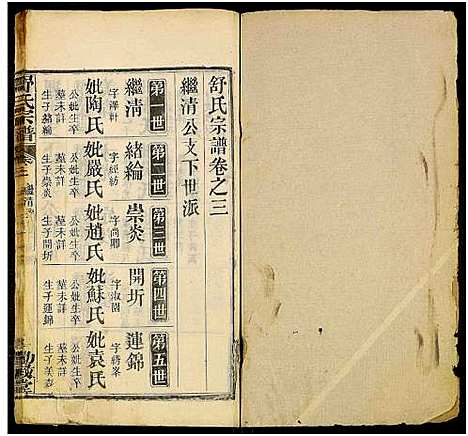 舒氏宗譜卷之三
繼清公支下世派
第一世
繼清
字澤軒
妣陶氏
公妣生卒
墓未詳
生子緒綸
第二世
緒綸
字經紡
妣嚴氏
公妣生卒
墓未詳
生子崇炎
第三世
崇炎
字尚卿
妣趙氏
公妣生卒
墓未詳
生子開圻
第四世
開圻
字淑園
妣蘇氏
公妣生卒
墓未詳
生子運錦
第五世
運錦
妣袁氏
公妣生卒
墓未詳
舒氏宗譜
卷三